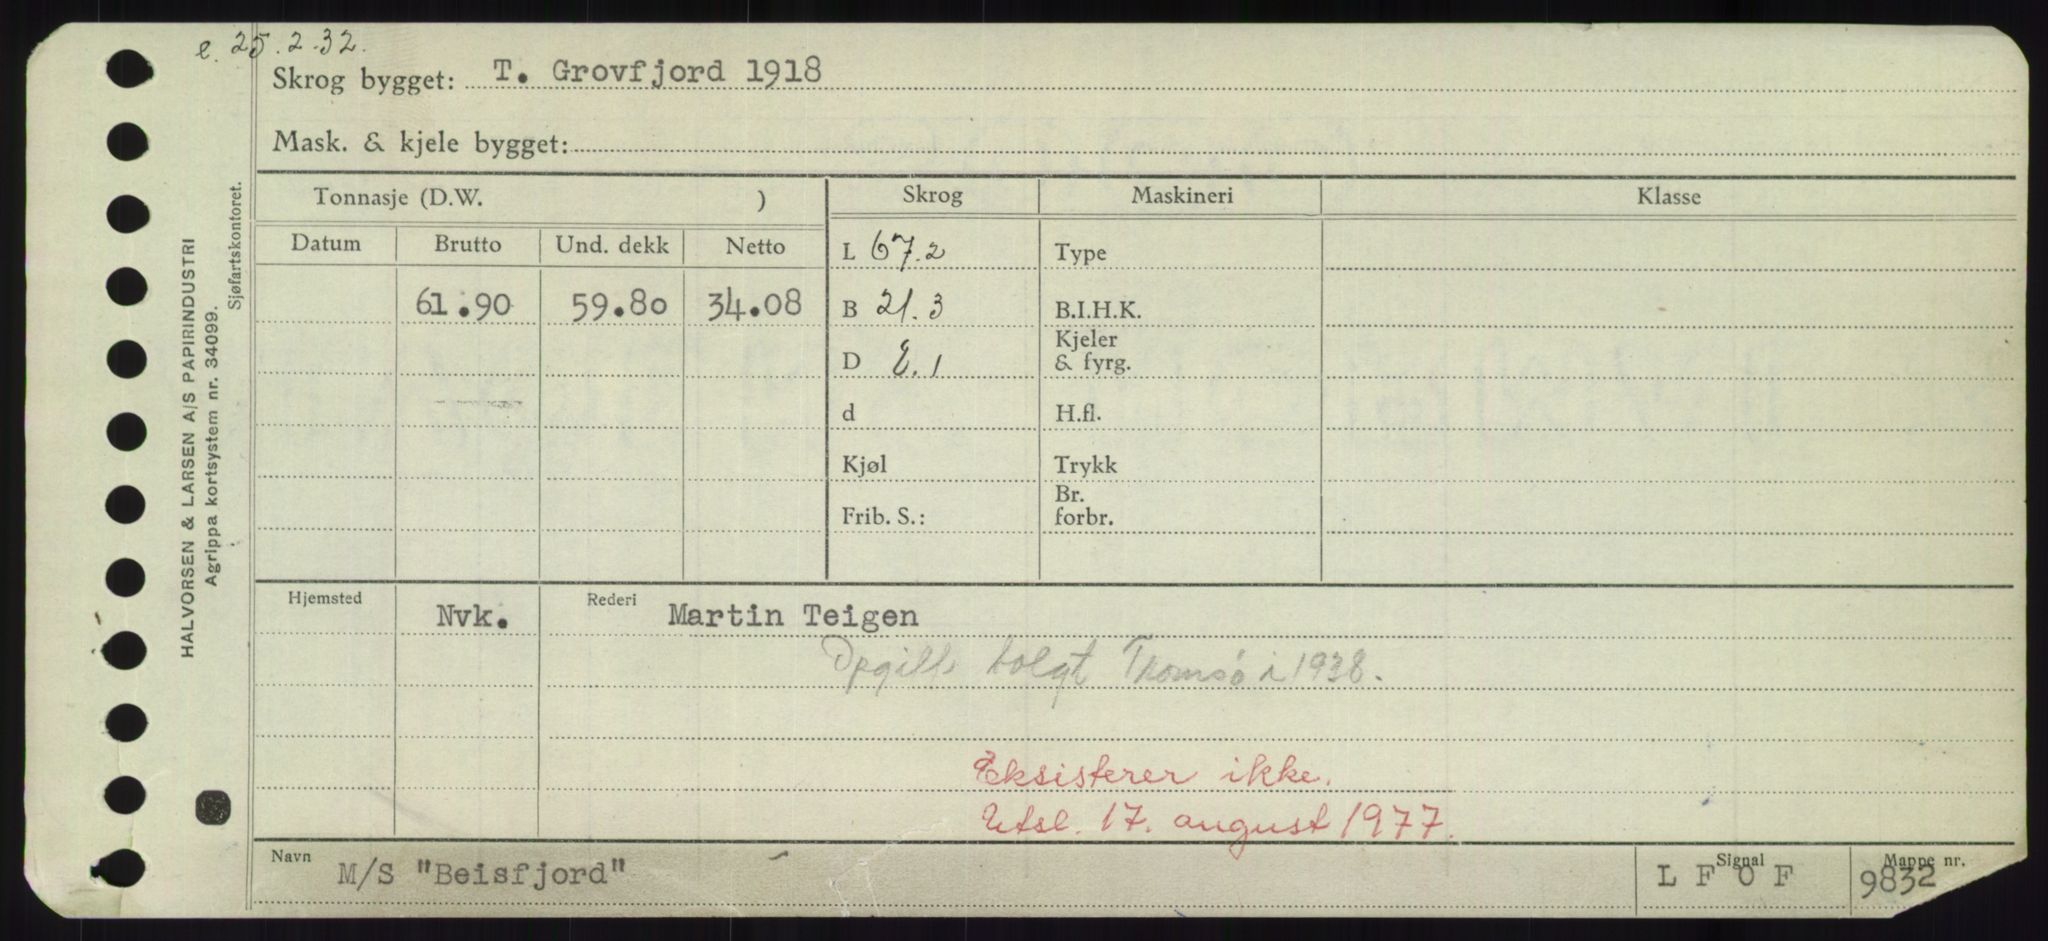 e. 25.2.32.
Skrog bygget: T. Grovfjord 1918
Mask. & kjele bygget:
Tonnasje (D.W. )
Skrog Maskineri Klasse
Datum Brutto Und. dekk Netto
L 67.2 Type
61.90 59.80 34.08
B 21.3 B.I.H.K.
Kjeler
D 8.1 & fyrg.
d H.fl.
Kjøl Trykk
Br.
Frib. S.: forbr.
Hjemsted Nvk. Rederi Martin Teigen
Tromsø i 1938.
Eksisterer ikke.
Utsl. 17. august 1977.
Navn M/S "Beisfjord"
Signal L F O F
Mappe nr. 9832
HALVORSEN & LARSEN A/S PAPIRINDUSTRI
Agrippa kortsystem nr. 34099.
Sjøfartskontoret.